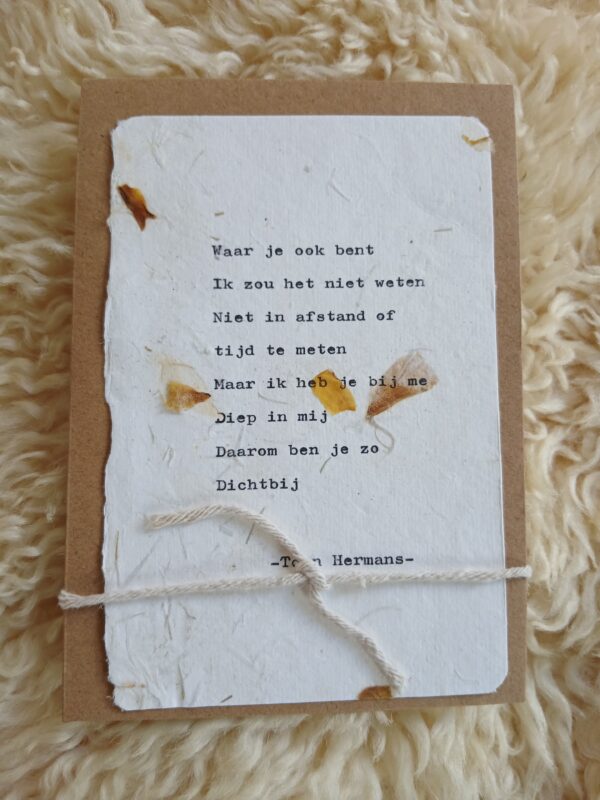 Waar je ook bent
Ik zou het niet weten
Niet in afstand of
tijd te meten
Maar ik heb je bij me
Diep in mij
Daarom ben je zo
Dichtbij
-Toon Hermans-